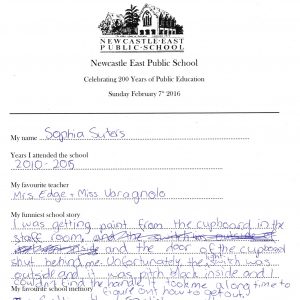 NEWCASTLE·EAST
PUBLIC·SCHOOL
Newcastle East Public School
Celebrating 200 Years of Public Education
Sunday February 7th 2016
My name Sophia Suters
Years I attended the school
2010-205
My favourite teacher
Mrs Edge + Miss Varagnolo
My funniest school story
I was getting paint from the cupboard in the
staff room, and the
and the door of the cupboard
shut behind me. Unfortunately the switch was
outside and it was pitch black inside and I
couldn't find the handle. It took me a long time to
My favourite school memory
figure out how to get out.